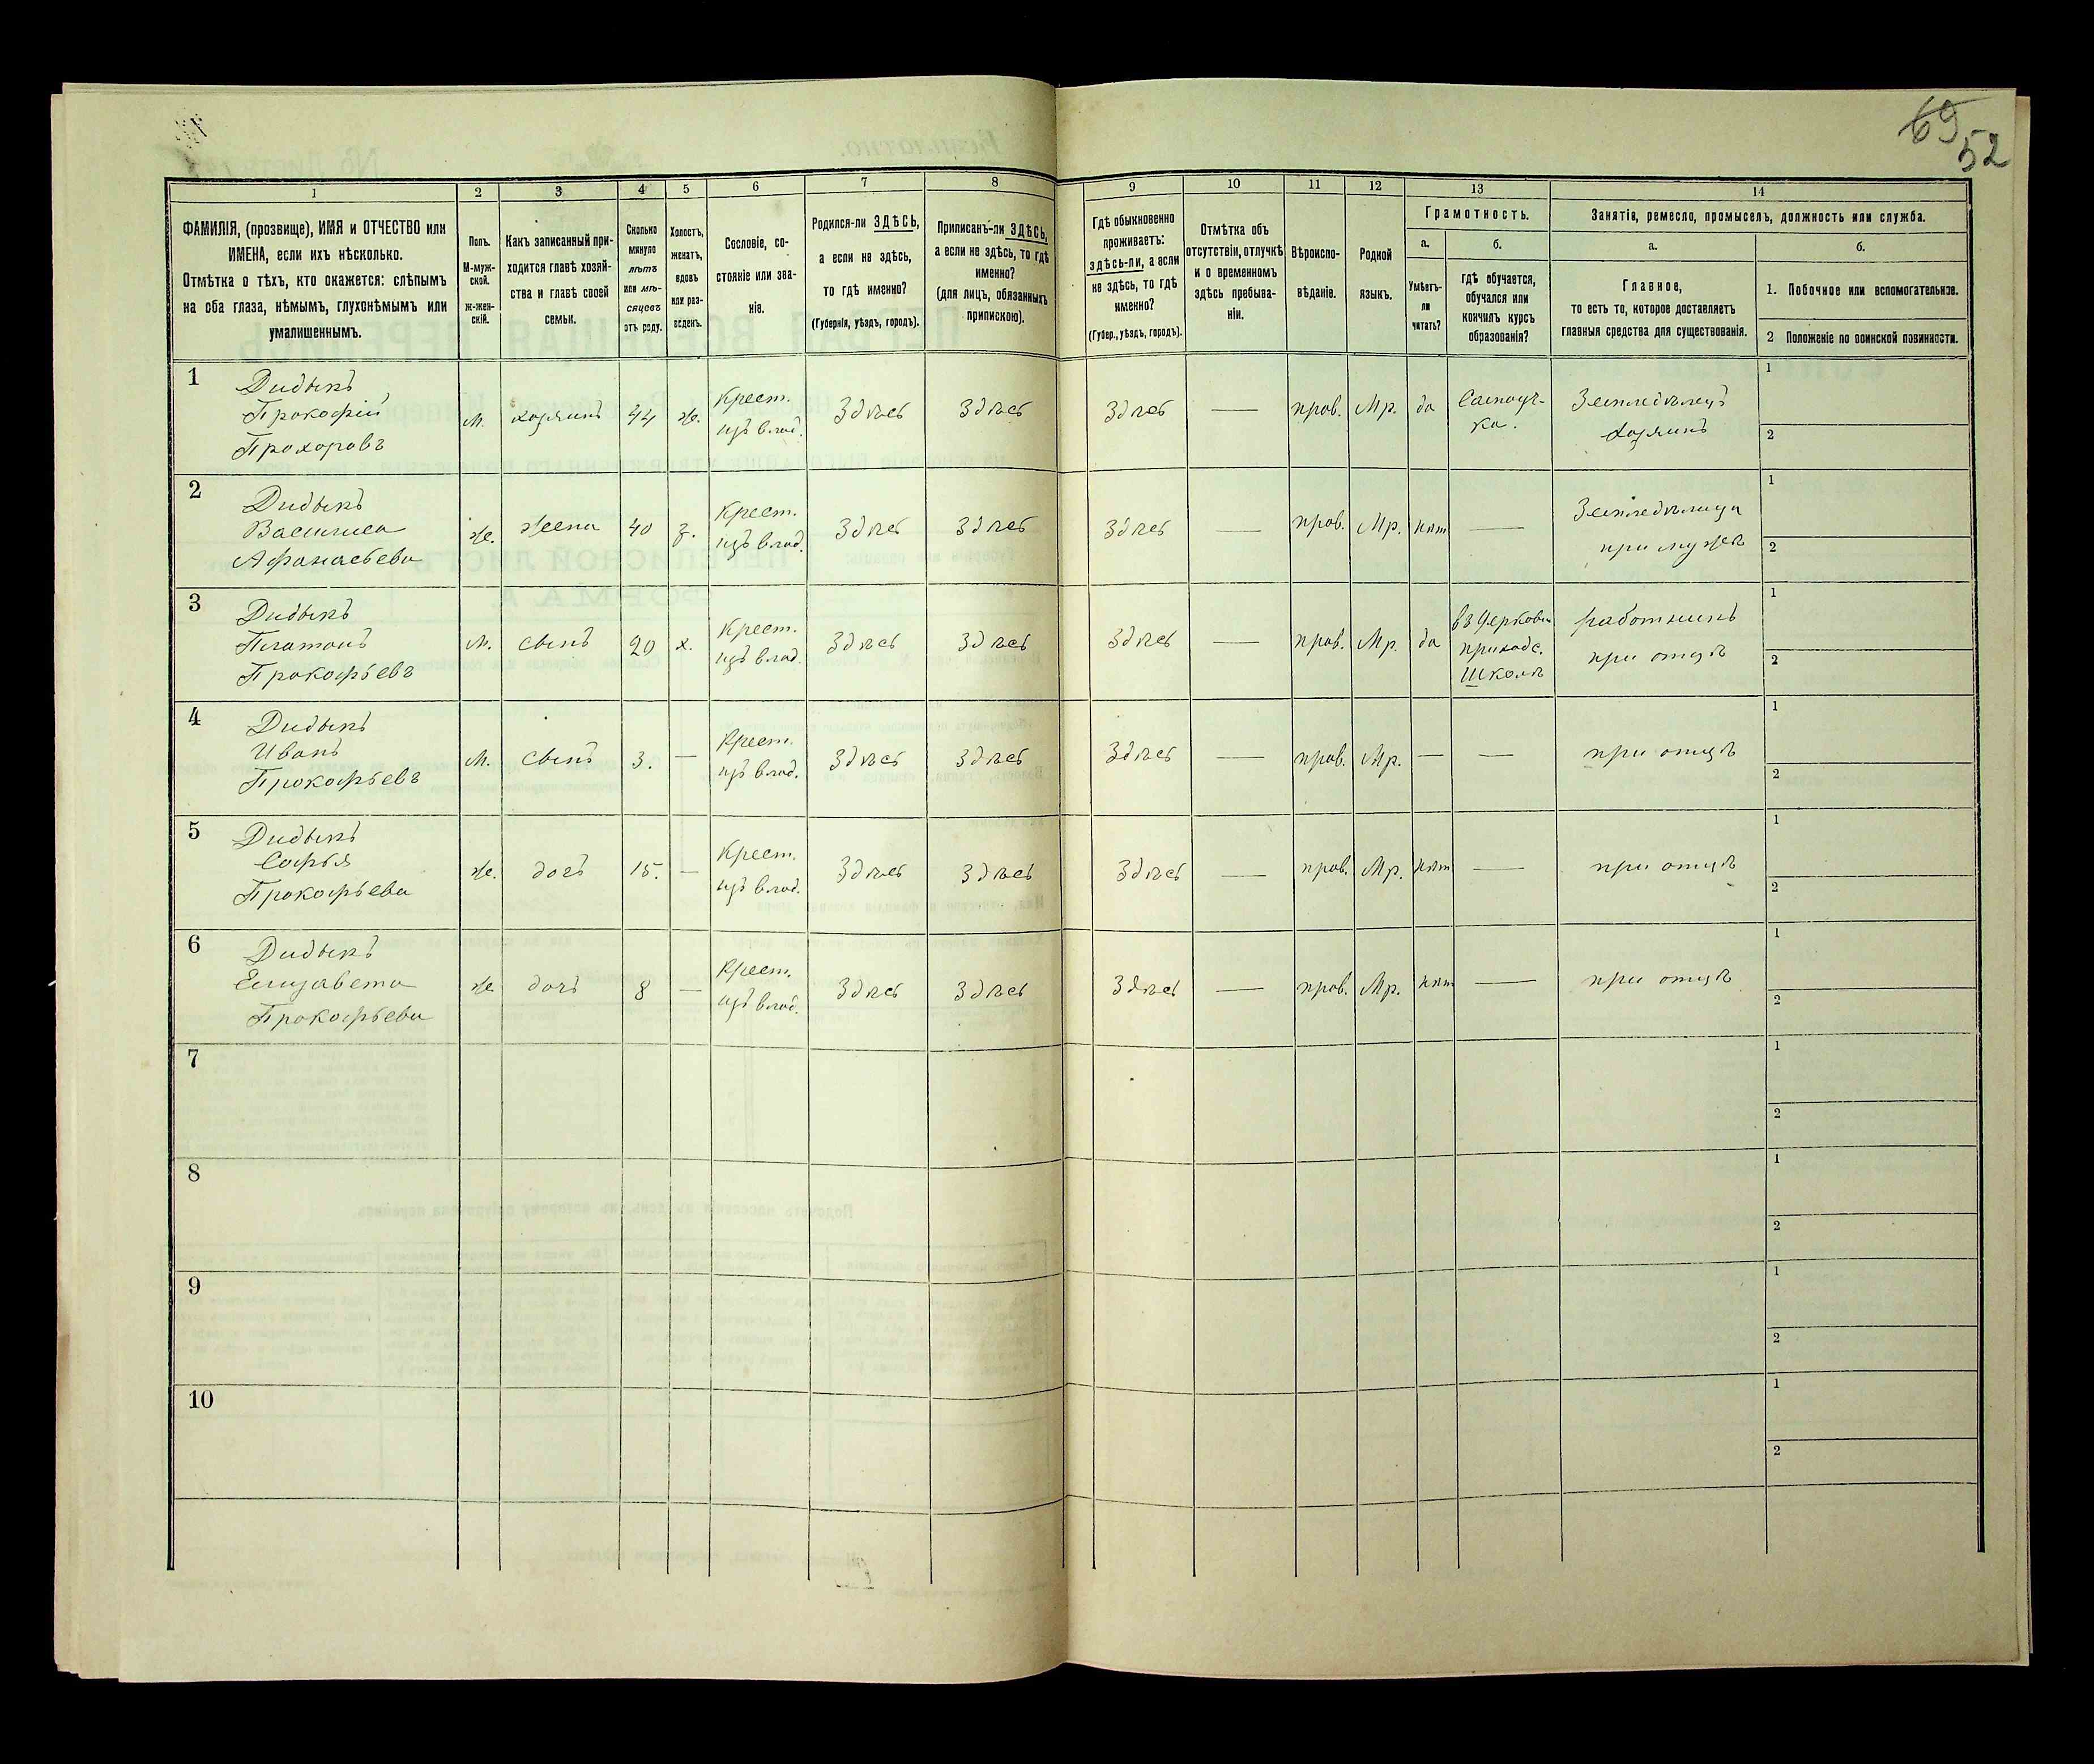 69
52
1
2
3
4
5
6
7
8
9
10
11
12
13
14
ФАМИЛІЯ, (прозвище), ИМЯ и ОТЧЕСТВО или
ИМЕНА, если ихъ нѣсколько.
Отмѣтка о тѣхъ, кто окажется: слѣпымъ
на оба глаза, нѣмымъ, глухонѣмымъ или
умалишеннымъ.
Полъ.
М-муж-
ской.
Ж-жен-
скій.
Какъ записанный при-
ходится главѣ хозяй-
ства и главѣ своей
семьи.
Сколько
минуло
лѣтъ
или мѣ-
сяцевъ
отъ роду.
Холостъ,
женатъ,
вдовъ
или раз-
веденъ.
Сословіе, со-
стояніе или зва-
ніе.
Родился-ли ЗДѢСЬ,
а если не здѣсь,
то гдѣ именно?
(Губернія, уѣздъ, городъ).
Приписанъ-ли ЗДѢСЬ,
а если не здѣсь, то гдѣ
именно?
(для лицъ, обязанныхъ
припискою).
Гдѣ обыкновенно
проживаетъ:
здѣсь-ли, а если
не здѣсь, то гдѣ
именно?
(Губер., уѣздъ, городъ).
Отмѣтка объ
отсутствіи, отлучкѣ
и о временномъ
здѣсь пребыва-
ніи.
Вѣроиспо-
вѣданіе.
Родной
языкъ.
Грамотность.
а.
Умѣетъ-
ли
читать?
б.
гдѣ обучается,
обучался или
кончилъ курсъ
образованія?
Занятія, ремесло, промыселъ, должность или служба.
а.
Главное,
то есть то, которое доставляетъ
главныя средства для существованія.
б.
1. Побочное или вспомогательное.
2 Положеніе по воинской повинности.
1
Дидыкъ
Прокофій
Прохоровъ
м.
хозяинъ
44
ж.
Крест.
изъ влад.
Здѣсь
Здѣсь
Здѣсь
—
прав.
Мр.
да
Самоуч-
ка.
Земледѣлецъ
хозяинъ
1
2
2
Дидыкъ
Василиса
Афанасьева
ж.
жена
40
з.
Крест.
изъ влад.
Здѣсь
Здѣсь
Здѣсь
—
прав.
Мр.
нѣт
—
Земледѣлица
при мужѣ
1
2
3
Дидыкъ
Платонъ
Прокофьевъ
м.
сынъ
20
х.
Крест.
изъ влад.
Здѣсь
Здѣсь
Здѣсь
—
прав.
Мр.
да
въ Церковн
приходс.
Школѣ
работникъ
при отцѣ
1
2
4
Дидыкъ
Иванъ
Прокофьевъ
м.
сынъ
3.
—
Крест.
изъ влад.
Здѣсь
Здѣсь
Здѣсь
—
прав.
Мр.
—
—
при отцѣ
1
2
5
Дидыкъ
Софья
Прокофьева
ж.
дочь
15.
—
Крест.
изъ влад.
Здѣсь
Здѣсь
Здѣсь
—
прав.
Мр.
нѣт
—
при отцѣ
1
2
6
Дидыкъ
Елизавета
Прокофьева
ж
дочь
8
—
Крест.
изъ влад.
Здѣсь
Здѣсь
Здѣсь
—
прав.
Мр.
нѣт
—
при отцѣ
1
2
7
1
2
8
1
2
9
1
2
10
1
2